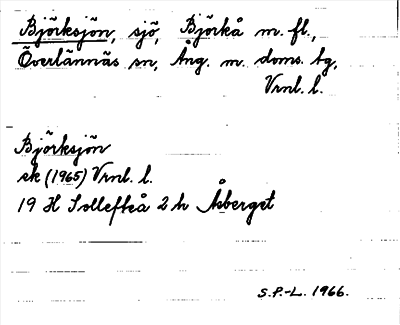 Björksjön, sjö, Björkå m. fl.,
Överlännäs sn, Ång. m. doms. tg,
Vrnl. l.
Björksjön
ek (1965) Vrnl. l.
19 H Sollefteå 2 h Åsberget
S.P.-L. 1966.